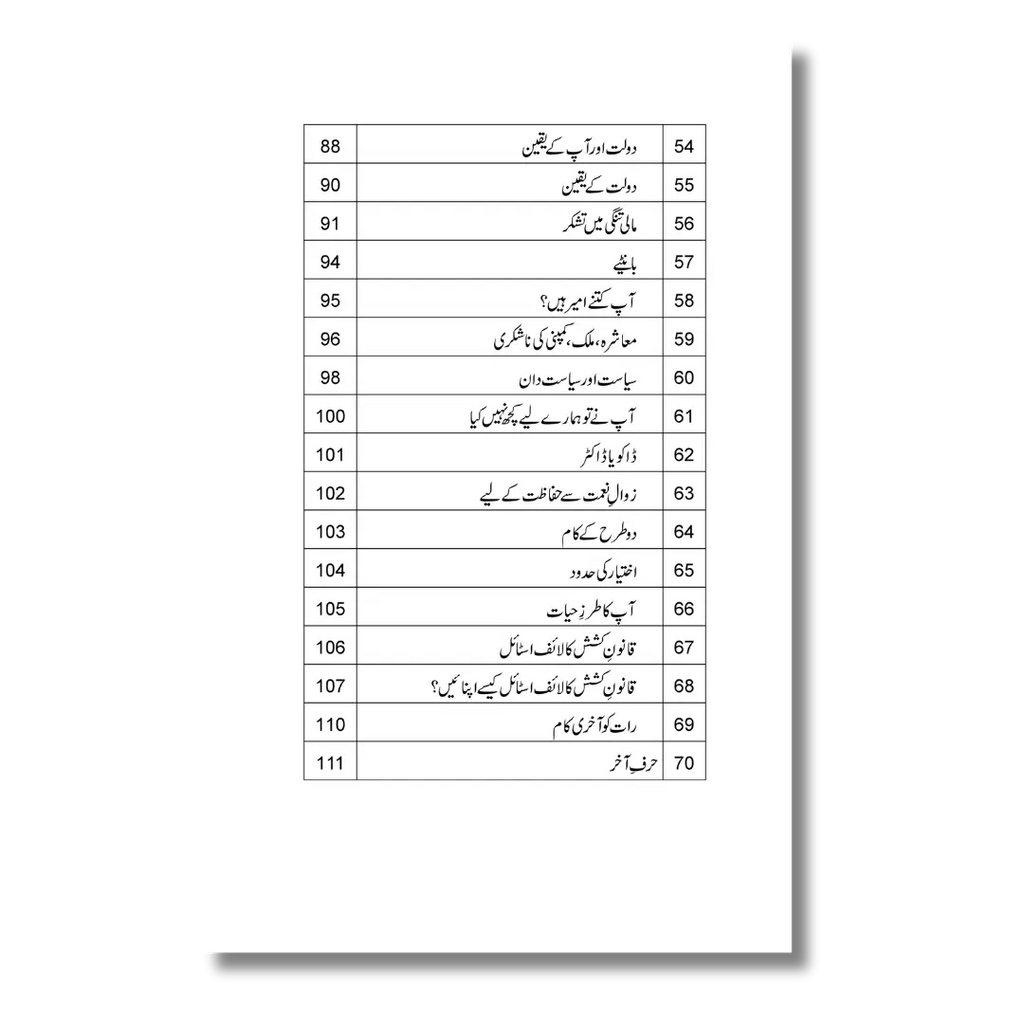 54 دولت اور آپ کے یقین 88
55 دولت کے یقین 90
56 مالی تنگی میں تشکر 91
57 بانٹیے 94
58 آپ کتنے امیر ہیں؟ 95
59 معاشرہ، ملک، کمپنی کی ناشکری 96
60 سیاست اور سیاست دان 98
61 آپ نے تو ہمارے لیے کچھ نہیں کیا 100
62 ڈاکو یا ڈاکٹر 101
63 زوالِ نعمت سے حفاظت کے لیے 102
64 دو طرح کے کام 103
65 اختیار کی حدود 104
66 آپ کا طرزِ حیات 105
67 قانونِ کشش کا لائف اسٹائل 106
68 قانونِ کشش کا لائف اسٹائل کیسے اپنائیں؟ 107
69 رات کو آخری کام 110
70 حرفِ آخر 111